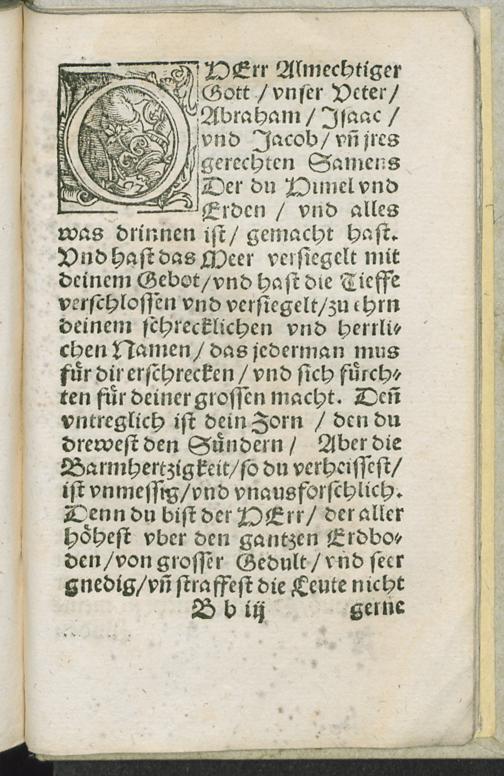 O HErr Almechtiger
Gott / vnser Veter /
Abraham / Isaac /
vnd Jacob / vñ jres
gerechten Samens
Der du Himel vnd
Erden / vnd alles
was drinnen ist / gemacht hast.
Vnd hast das Meer versiegelt mit
deinem Gebot / vnd hast die Tieffe
verschlossen vnd versiegelt / zu ehrn
deinem schrecklichen vnd herrli-
chen Namen / das jederman mus
für dir erschrecken / vnd sich fürch-
ten für deiner grossen macht. Deñ
vntreglich ist dein Zorn / den du
drewest den Sündern / Aber die
Barmhertzigkeit / so du verheissest /
ist vnmessig / vnd vnausforschlich.
Denn du bist der HErr / der aller
höhest vber den gantzen Erdbo-
den / von grosser Gedult / vnd seer
gnedig / vñ straffest die Leute nicht
B b iij gerne